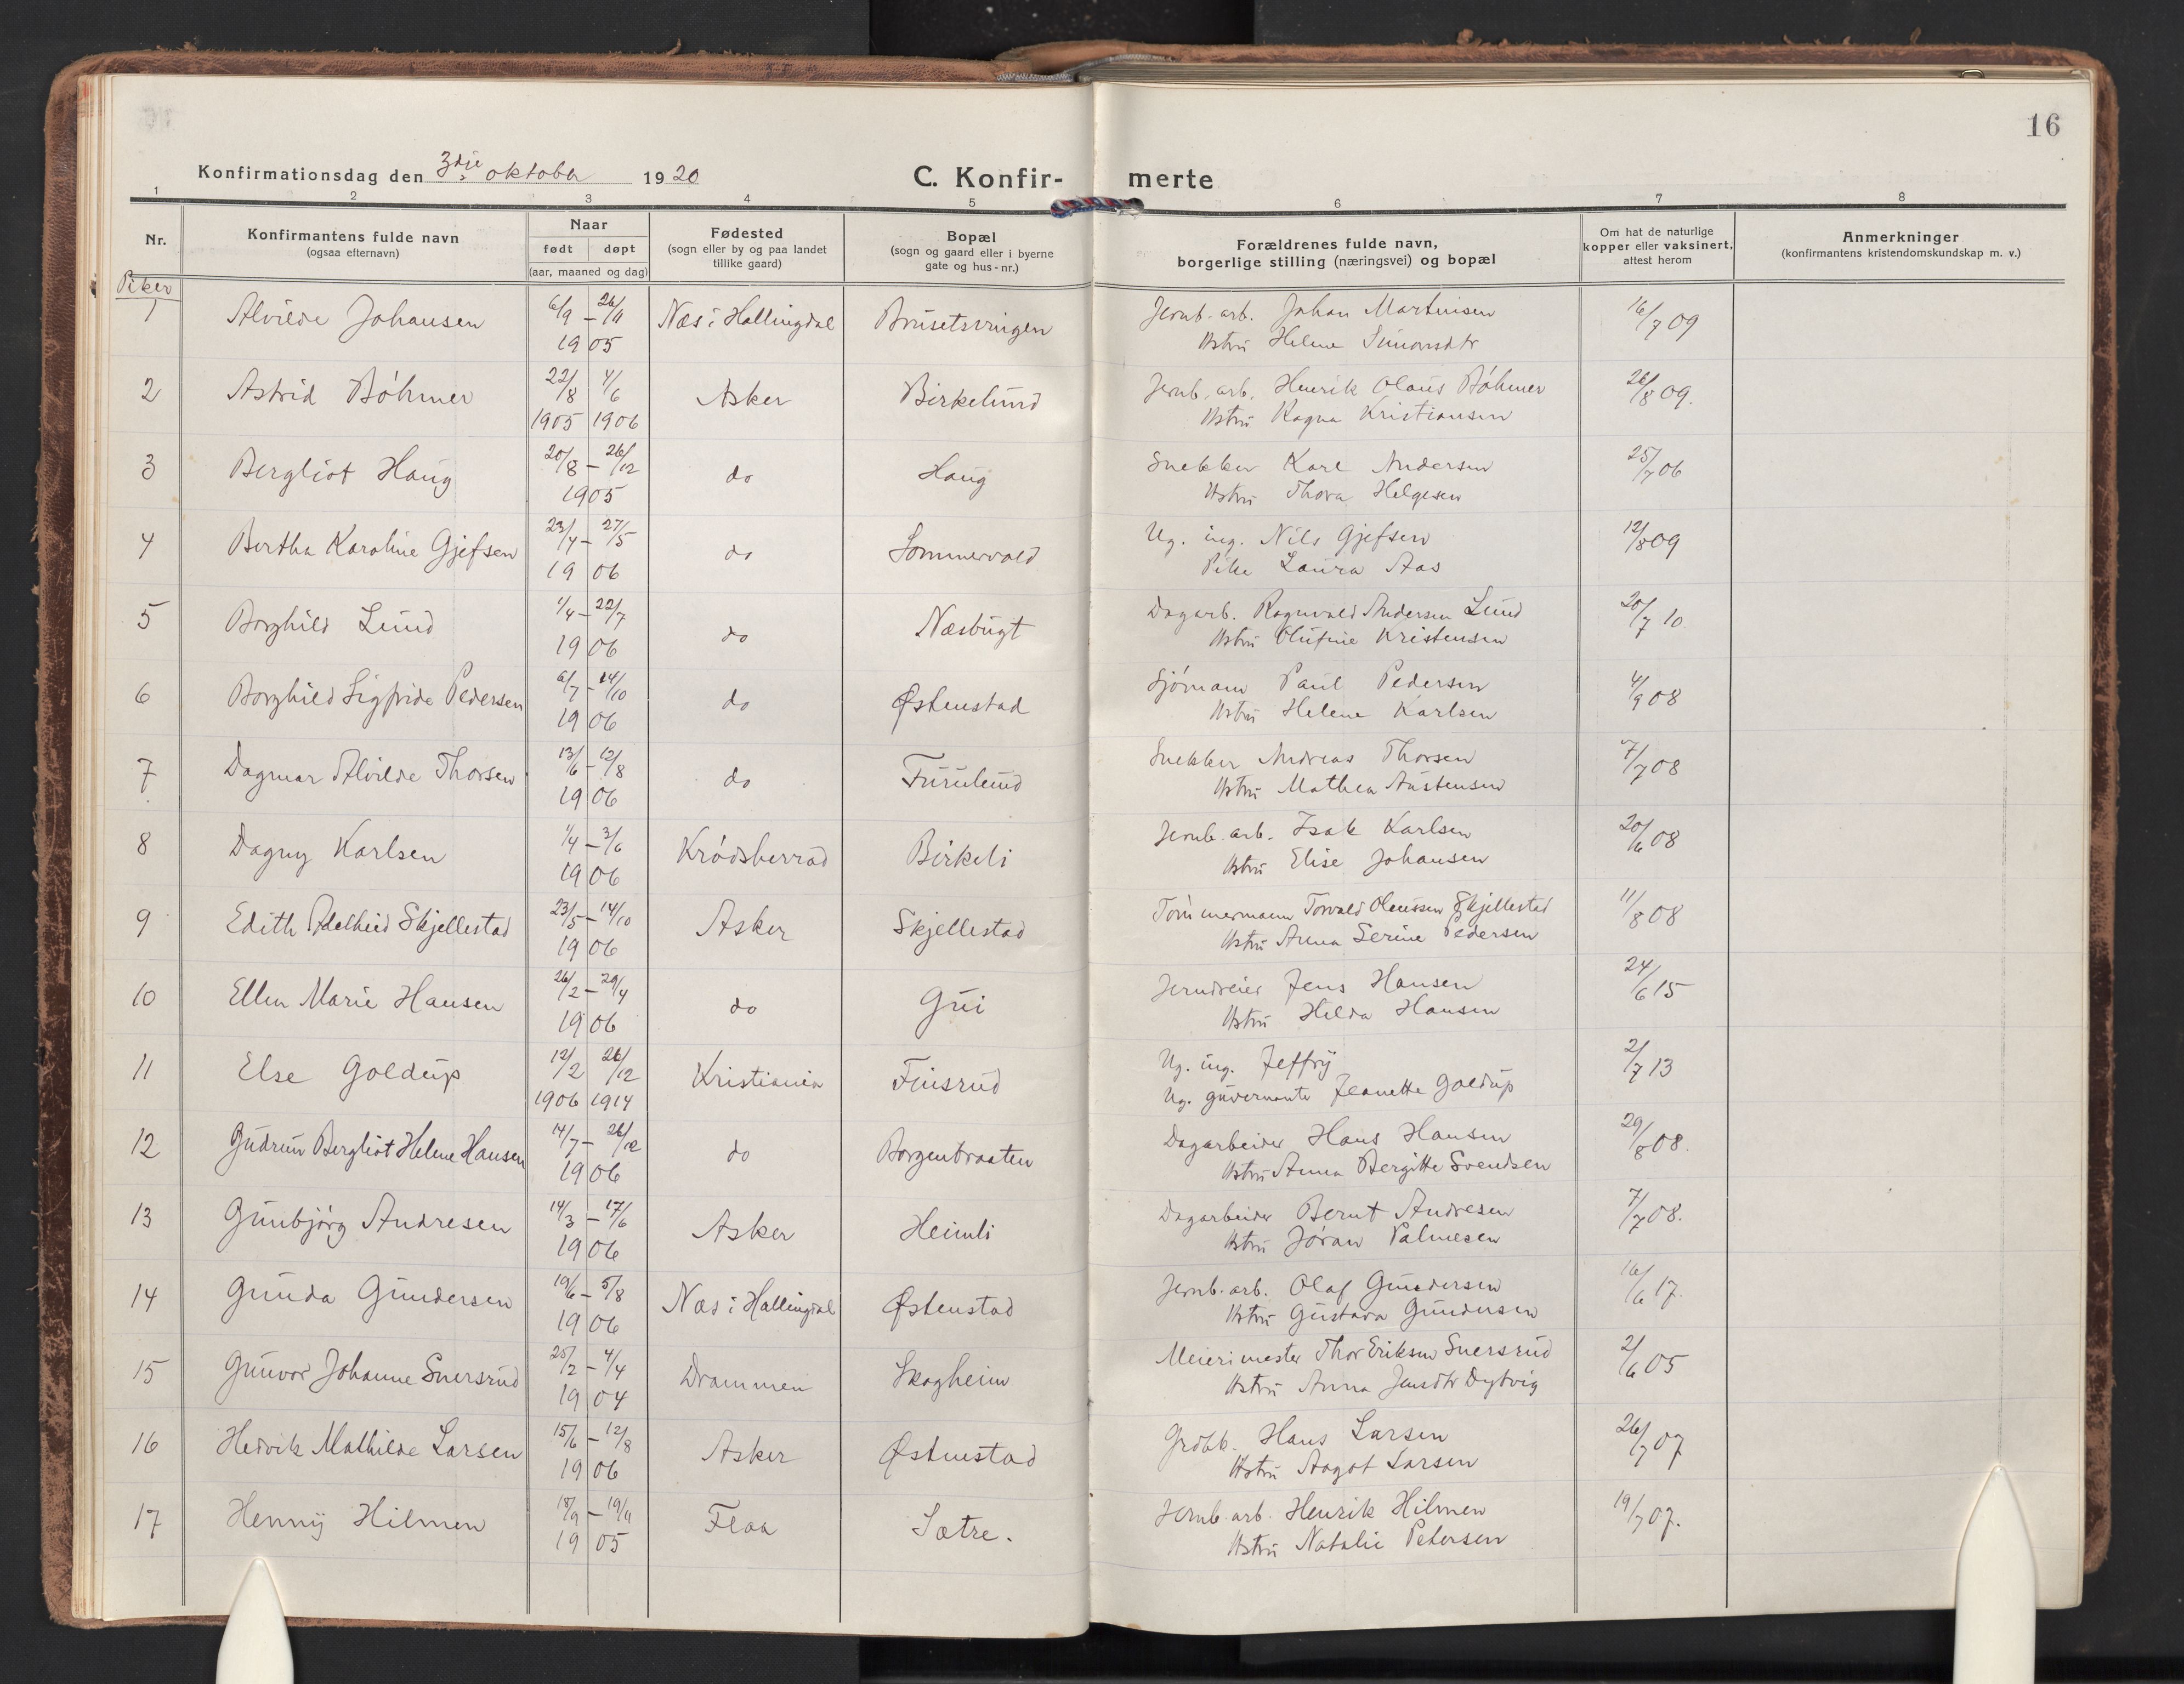 16
Konfirmationsdag den 3die oktober 1920
C. Konfirmerte
1 2 3 4 5 6 7 8
Nr.
Konfirmantens fulde navn
(ogsaa efternavn)
Naar
født døpt
(aar, maaned og dag)
Fødested
(sogn eller by og paa landet
tillike gaard)
Bopæl
(sogn og gaard eller i byerne
gate og hus-nr.)
Forældrenes fulde navn,
borgerlige stilling (næringsvei) og bopæl
Om hat de naturlige
kopper eller vaksinert,
attest herom
Anmerkninger
(konfirmantens kristendomskundskap m. v.)
Piker
1 Alvilde Johansen 6/9 - 26/11 Næs i Hallingdal Brusetsvingen Jernb. arb. Johan Martinsen 16/7 09
1905 Hstru Helene Simonsdtr
2 Astrid Bøhmer 22/8 4/6 Asker Birkelund Jernb. arb. Henrik Olaus Bøhmer 26/8 09.
1905 1906 Hstru Ragna Kristiansen
3 Bergliot Haug 20/8 - 26/12 do Haug Snekker Karl Andersen 25/7 06
1905 Hstru Thora Helgesen
4 Bertha Karoline Gjefsen 23/4 - 27/5 do Sommervold Ug. ing. Nils Gjefsen 12/8 09
1906 Pike Laura Aas
5 Borghild Lund 1/4 - 22/7 do Næsbugt Dagarb. Ragnvald Andersen Lund 20/7 10
1906 Hstru Olufine Kristensen
6 Borghild Sigfride Pedersen 6/7 - 14/10 do Østenstad Sjømann Paul Pedersen 4/9 08
1906 Hstru Helene Karlsen
7 Dagmar Alvilde Thorsen 13/6 - 12/8 do Furulund Snekker Andreas Thorsen 7/7 08
1906 Hstru Mathea Austensen
8 Dagny Karlsen 1/4 - 3/6 Krødsherrad Birkeli Jernb. arb. Isak Karlsen 20/6 08
1906 Hstru Elise Johansen
9 Edith Adelheid Skjellestad 23/5 - 14/10 Asker Skjellestad Tømmermann Torvald Olaussen Skjellestad 11/8 08
1906 Hstru Anna Serine Pedersen
10 Ellen Marie Hansen 26/2 - 29/4 do Gui Jerndreier Jens Hansen 24/6 15
1906 Hstru Hilda Hansen
11 Else Goldup 12/2 26/12 Kristiania Finsrud Ug. ing. Jeffrij 2/7 13
1906 1914 Ug. guvernante Jeanette Goldup
12 Gudrun Bergliot Helene Hansen 14/7 - 26/12 do Borgenbraaten Dagarbeider Hans Hansen 29/8 08.
1906 Hstru Anna Bergitte Svendsen
13 Gunbjørg Andresen 14/3 - 17/6 Asker Heimli Dagarbeider Bernt Andresen 7/7 08.
1906 Hstru Jøran Palmesen
14 Gunda Gundersen 19/6 - 5/8 Næs i Hallingdal Østenstad Jernb. arb. Olaf Gundersen 16/6 17.
1906 Hstru Gustava Gundersen
15 Gunvor Johanne Snersrud 25/2 - 4/4 Drammen Skogheim Meierimester Thor Eriksen Snersrud 2/6 05
1904 Hstru Anna Jensdtr Dytvig
16 Hedvik Mathilde Larsen 15/6 - 12/8 Asker Østenstad Grdbk. Hans Larsen 26/7 07
1906 Hstru Aagot Larsen
17 Hennij Hilmen 18/9 - 19/11 Flaa Sætre. Jernb. arb. Henrik Hilmen 19/7 07.
1905 Hstru Natalie Petersen